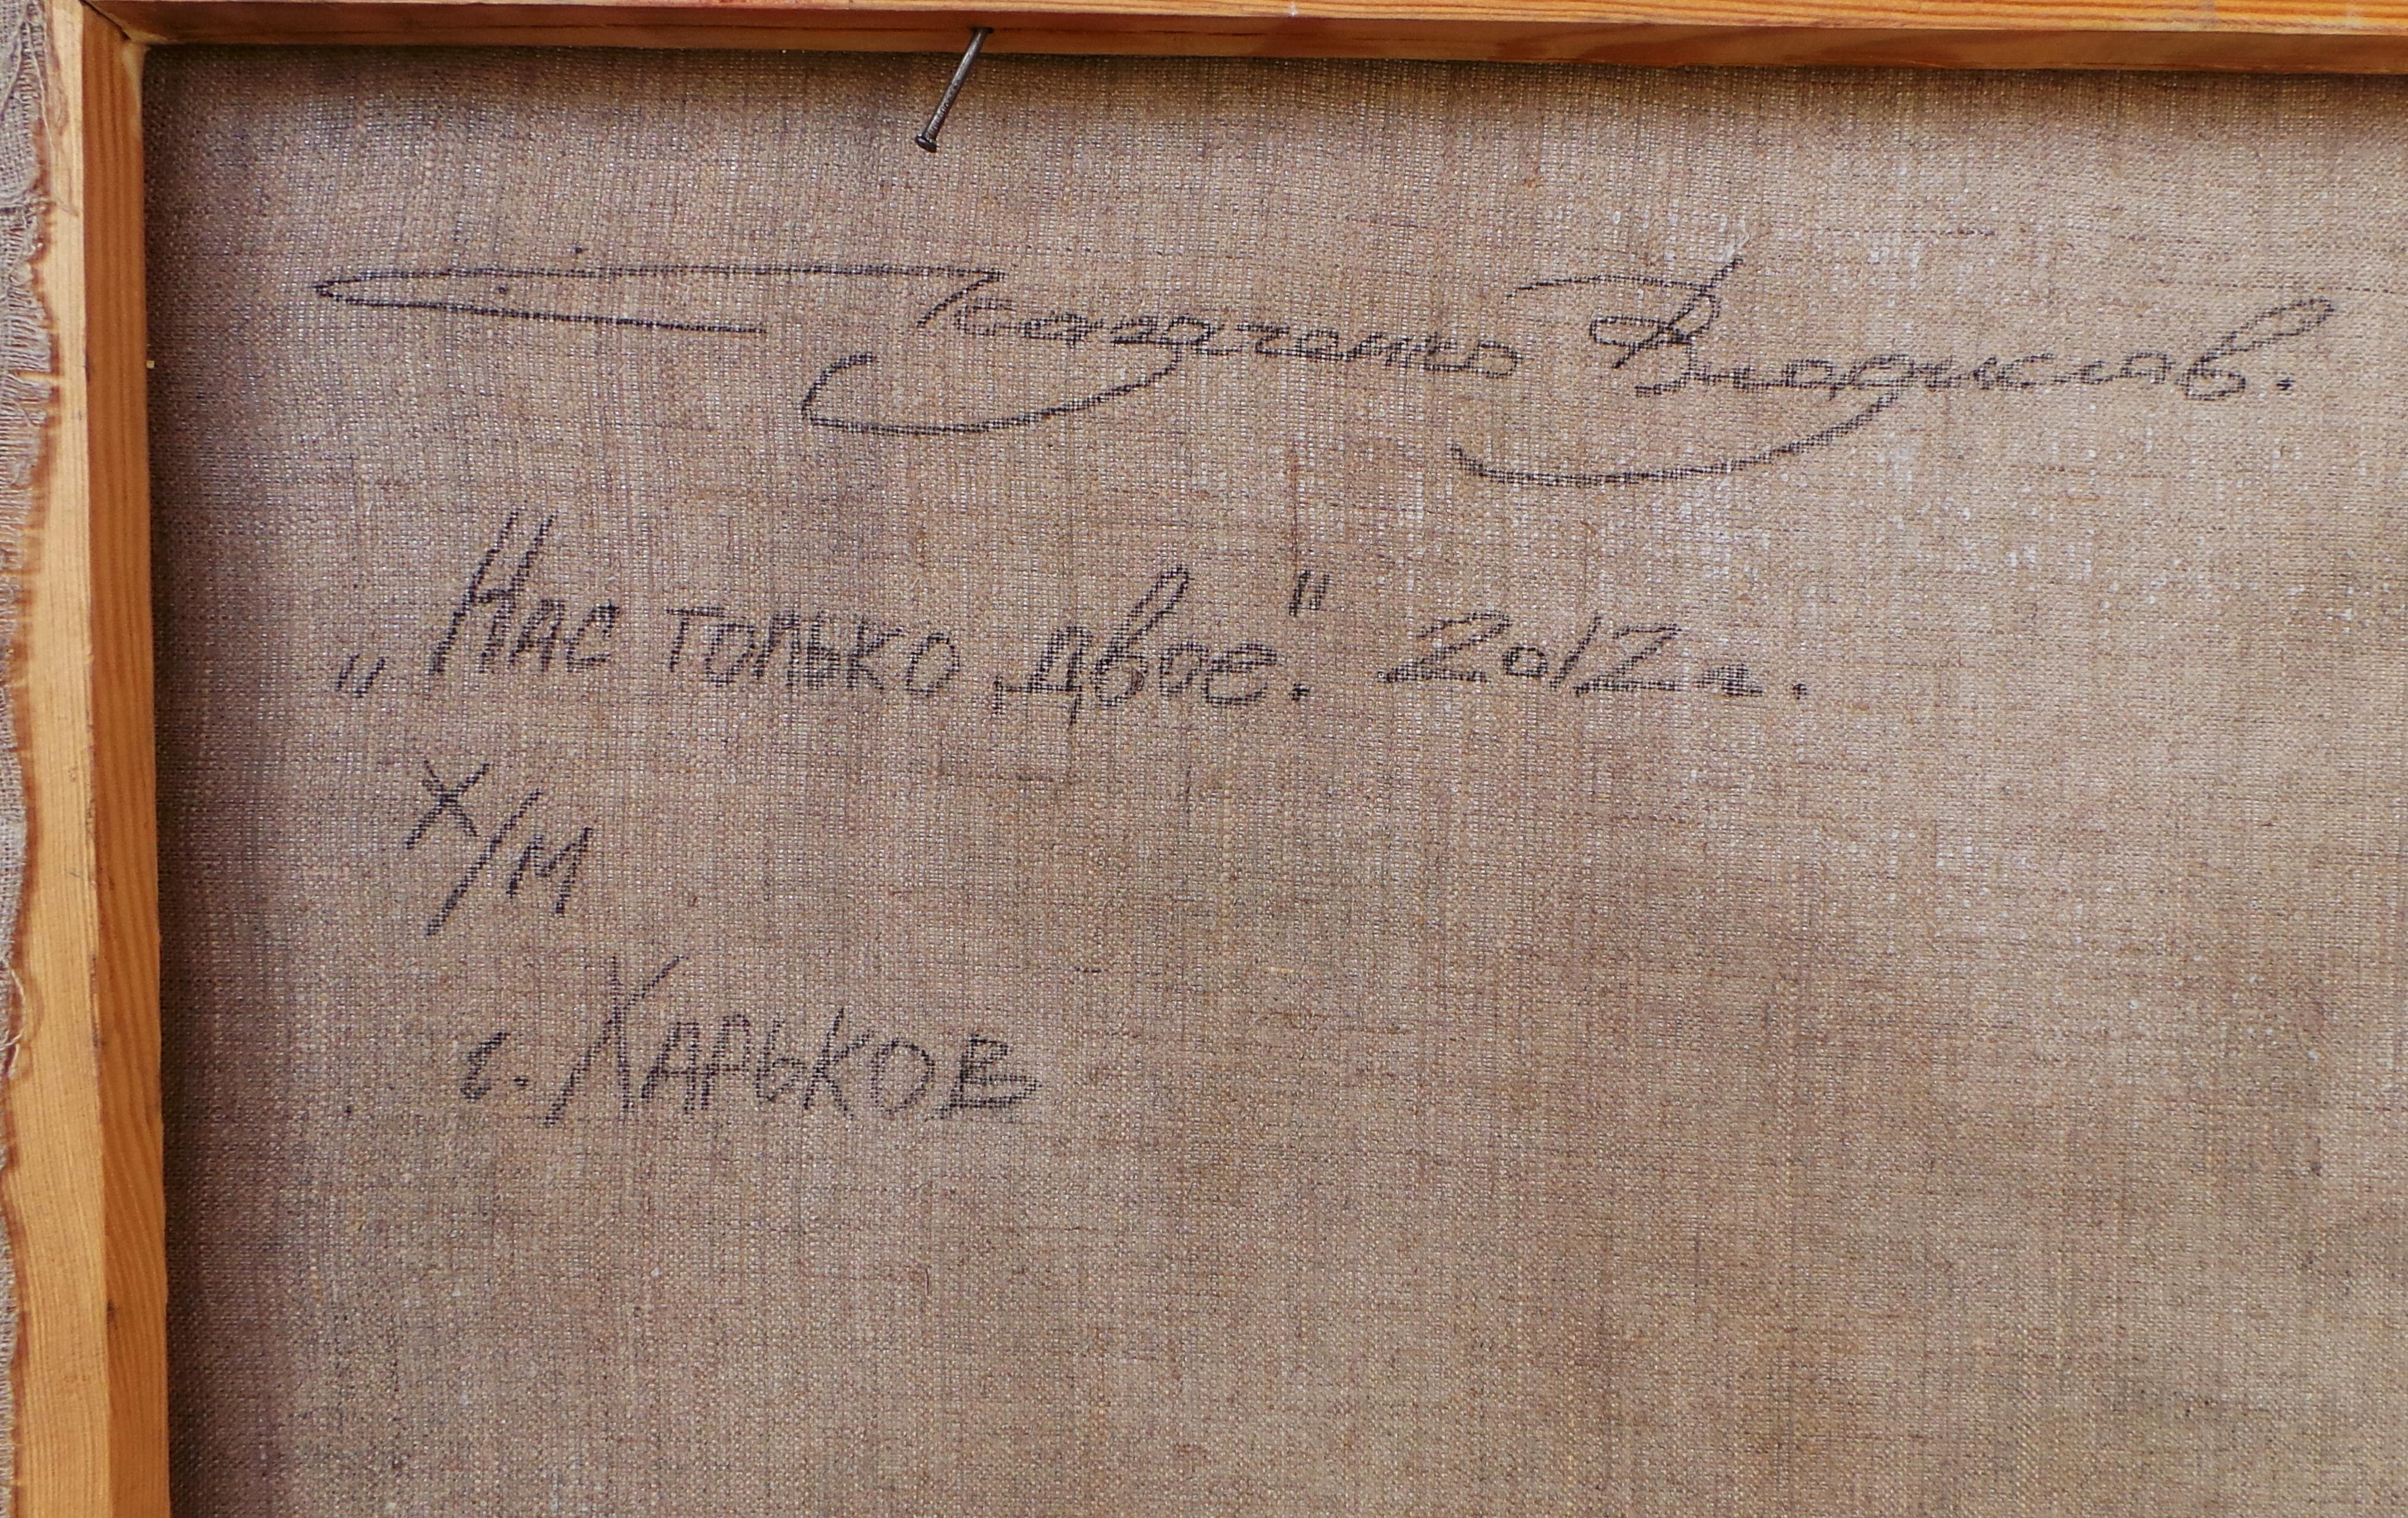 Казаченко Владислав.
„Нас только двое." 2012г.
х/м
г. Харьков